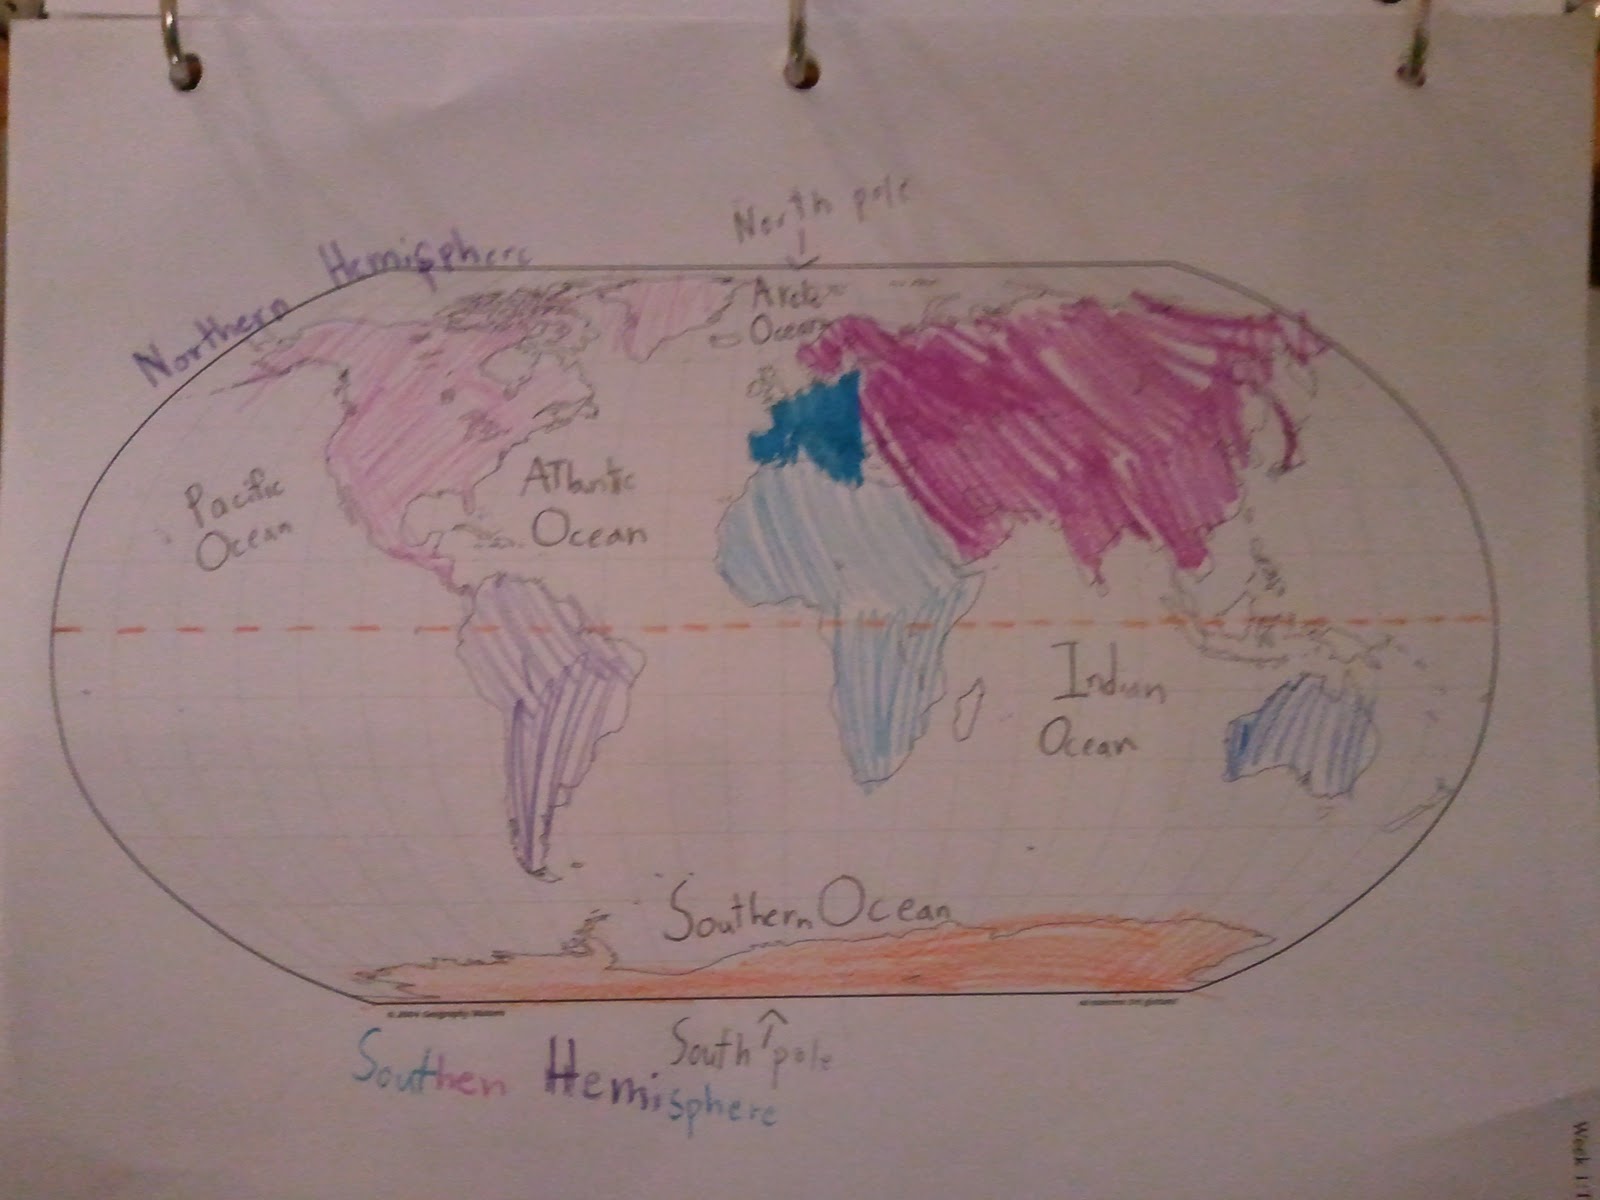 North pole
Northern Hemisphere
Arctic
Ocean
Pacific
Ocean
Atlantic
Ocean
Indian
Ocean
Southern Ocean
South pole
Southen Hemisphere
Week 11